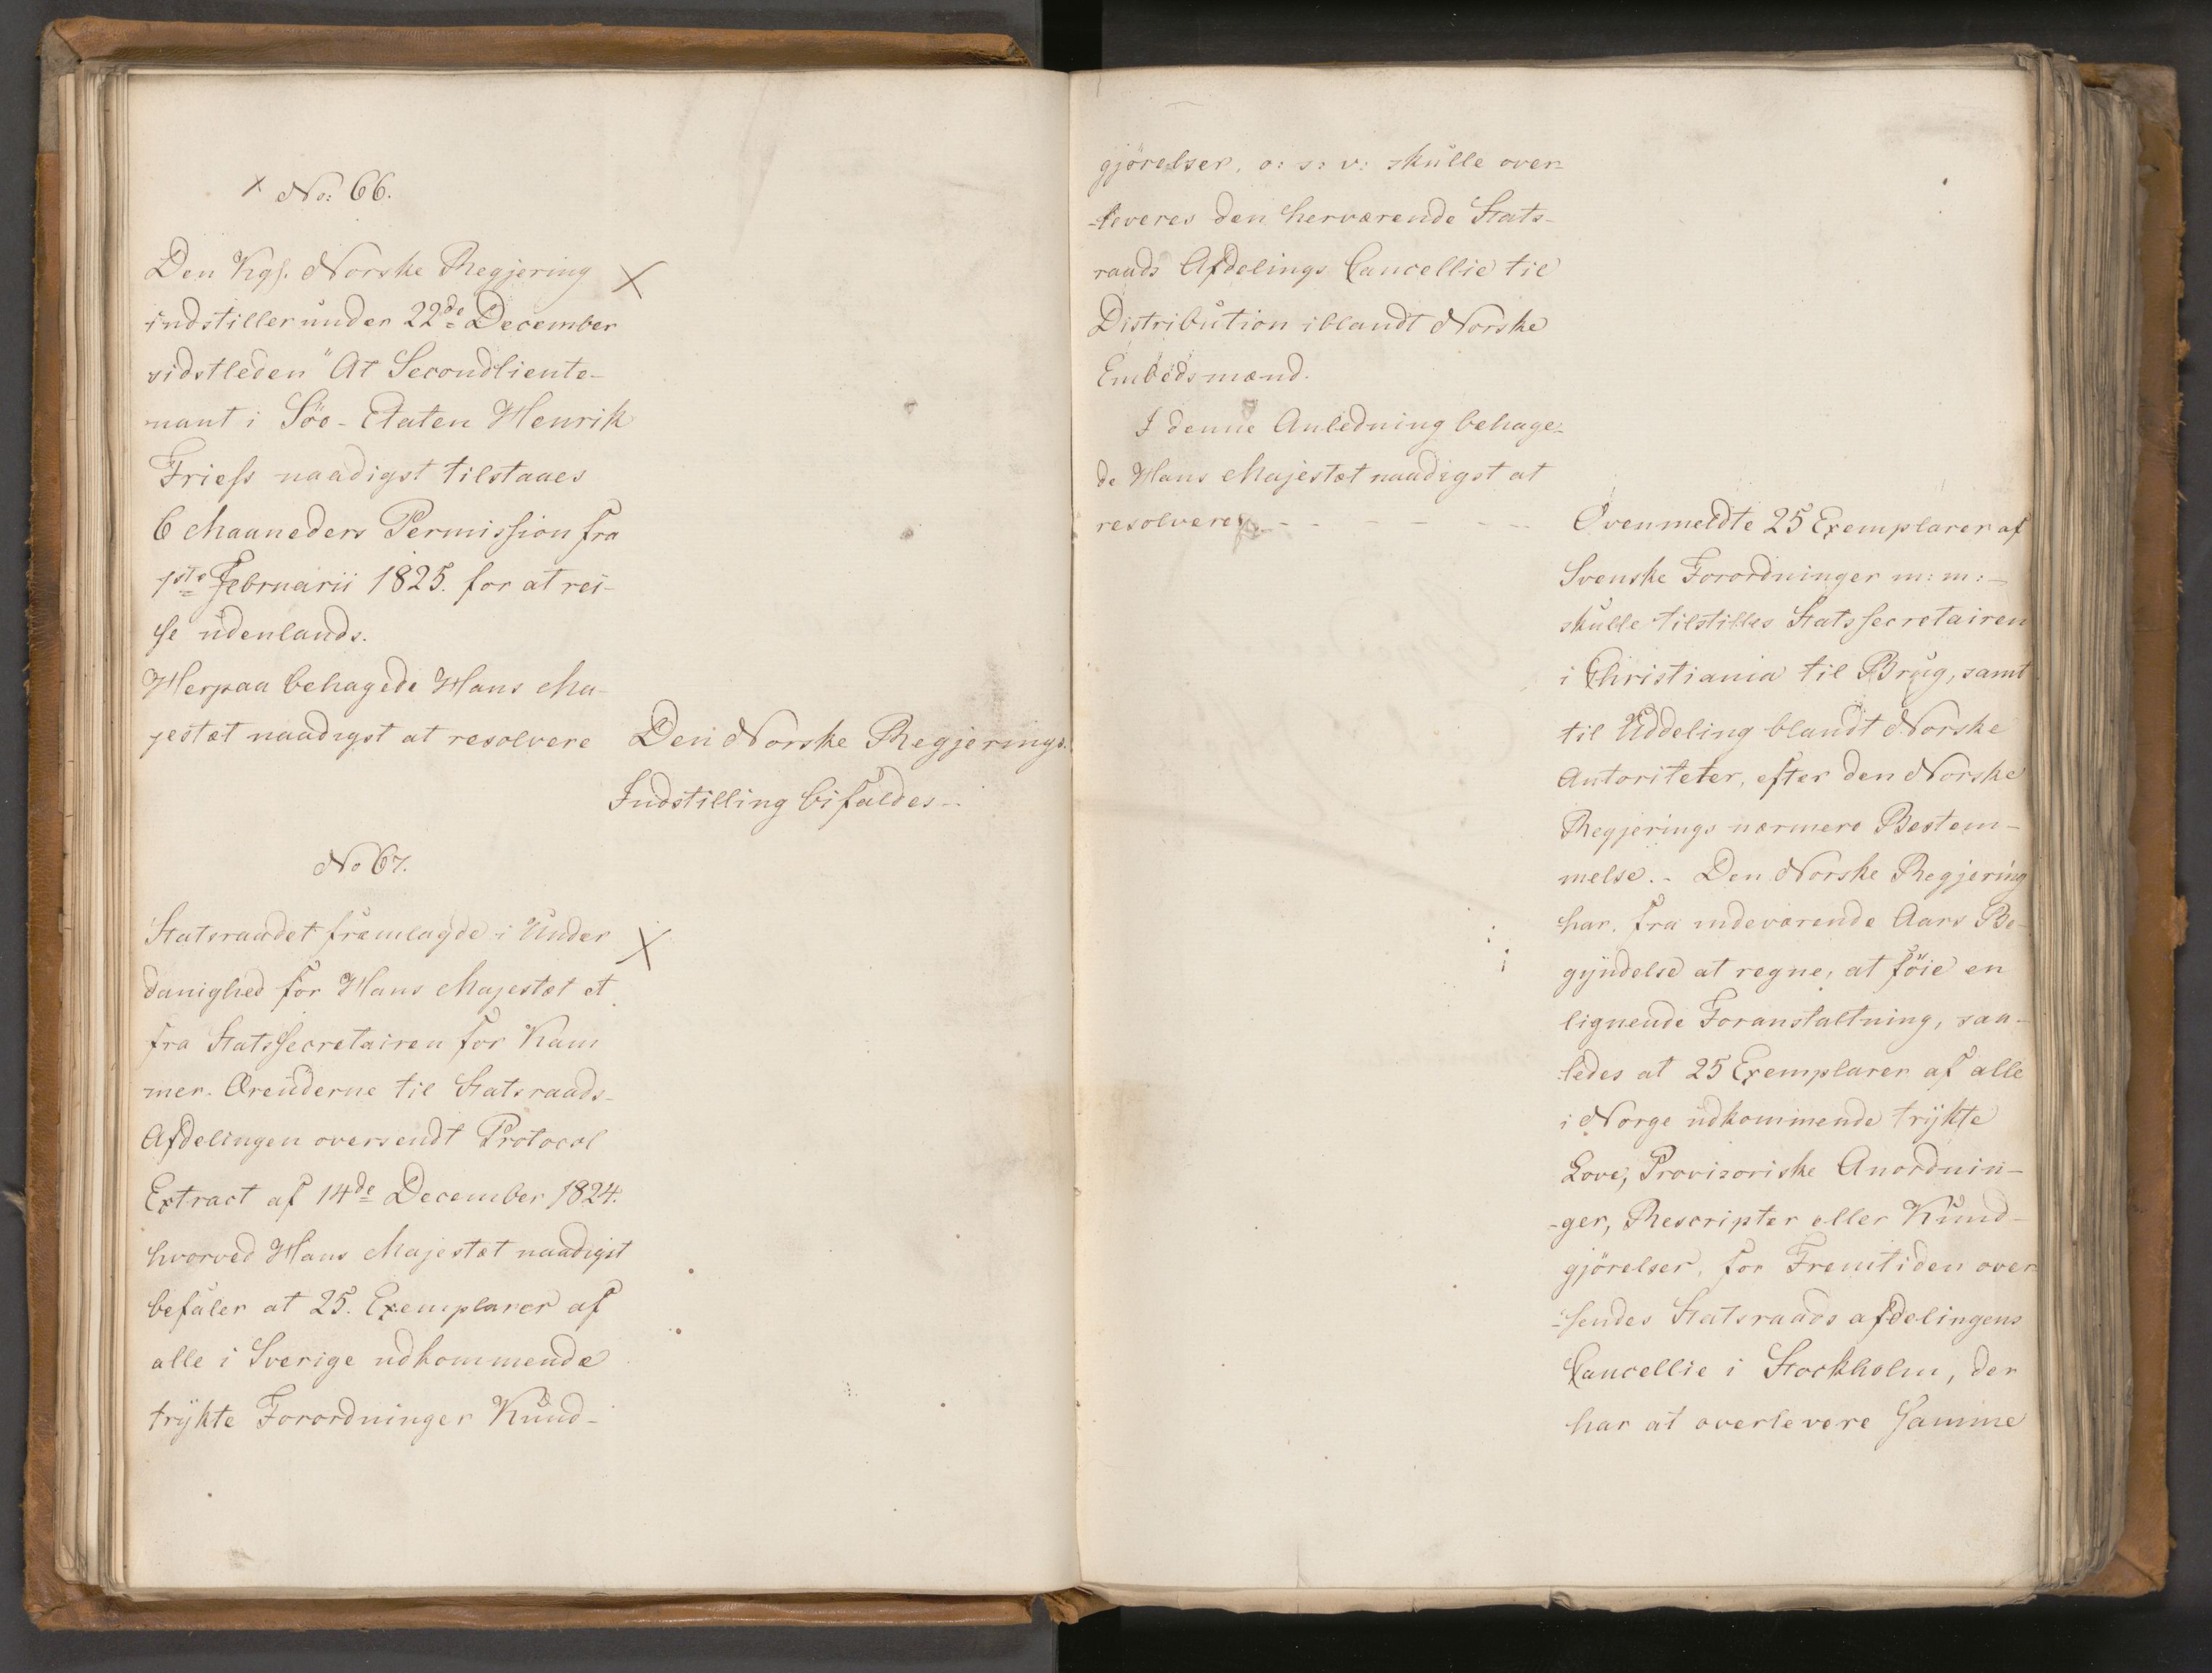 x No: 66.
Den Kgs. Norske Regjering X
indstiller under 22de December
sidstleden "At Secondliente-
nant i Söe-Etaten Henrik
Friess naadigst tilstaaes
6 Maaneders Permission fra
1ste Februarii 1825. for at rei-
se udenlands.
Herpaa behagede Hans Ma-
jestæt naadigst at resolvere
Den Norske Regjerings.
Indstilling bifaldes.-
No 67.
Statsraadet fremlagde i Under X
danighed for Hans Majestæt et
fra Statssecretairen for Kam
mer-Ærenderne til Statsraads-
Afdelingen oversendt Protocol
Extract af 14de December 1824.
hvorved Hans Majestæt naadigst
befaler at 25. Exemplarer af
alle i Sverige udkommende
trykte Forordninger Kund-
gjörelser, o: s: v: skulle over-
-leveres den herværende Stats-
raads Afdelings Cancellie til
Distribution iblandt Norske
Embedsmænd.
I denne Anledning behage-
de Hans Majestæt naadigst at
resolvere - - - - - -
Ovenmeldte 25 Exemplarer af
Svenske Forordninger m: m:-
skulle tilstilles Statssecretairen
i Christiania til Brug, samt
til Uddeling blandt Norske
Autoriteter, efter den Norske
Regjerings nærmere Bestem-
melse.- Den Norske Regjering
har, fra indeværende Aars Be-
gyndelse at regne, at föie en
lignende Foranstaltning, saa-
ledes at 25 Exemplarer af alle
i Norge udkommende trykte
Love, Provisoriske Anordnin-
-ger, Rescripter eller Kund-
gjörelser, for Fremtiden over
-sendes Statsraads afdelingens
Cancellie i Stockholm, der
har at overlevere Samme